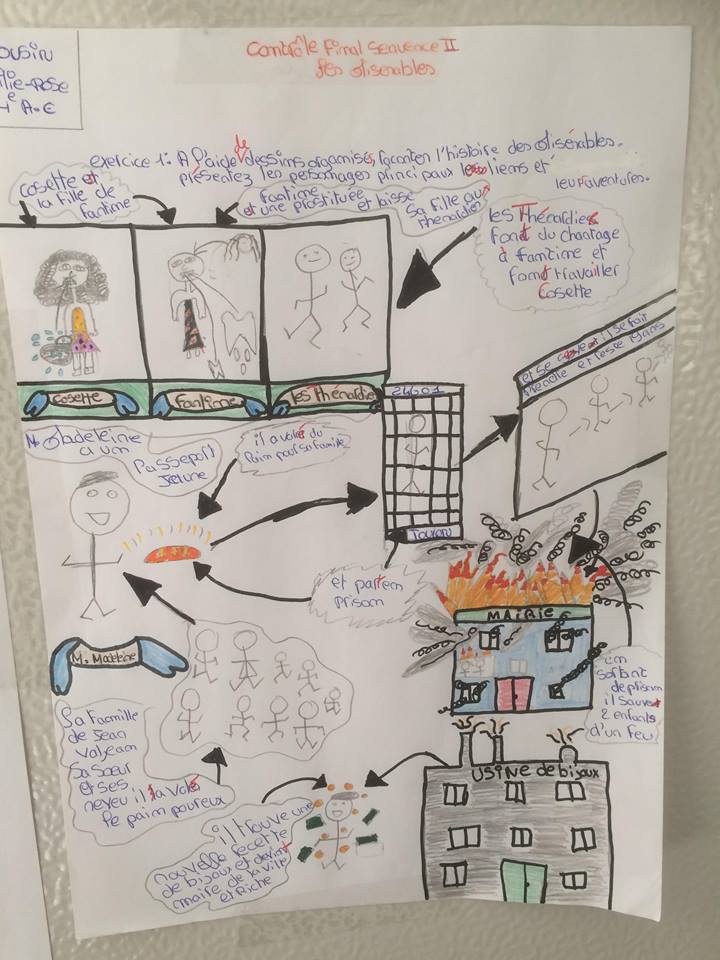 OUSIN
LIE-ROSE
4e A.C
Contrôle Final Sequence II
Les Misérables
exercice 1: A l'aide de dessims organisés, raconten l'histoire des Misérables.
présentez les personages principaux les liens et
leur aventures.
Cosette et
la fille de
fantime
fantime
et une prostituée et laisse
Sa fille aux
Thérnardien
Les Thérnardier
font du chantage
à fantime et
font travailler
Cosette
Cosette
fantime
les Thérnardie
24601
Toulon
et se sauve il se fait
prendre et reste 19 ans
M. Madeleine
a um
Passeport
Jaune
il a volé du
Paim pour sa famille
et part em
prisom
M. Madeleine
MAIRIE
em
sortant
de prisom
il sauve
2 enfants
d'un feu
Sa famille
de Jean
Valjeam
Sa sœur
et ses
neveu il a volé
le paim pour eux
USINE de bijoux
il trouve une
nouvelle recette
de bijoux et devint
maire de la ville
et Riche